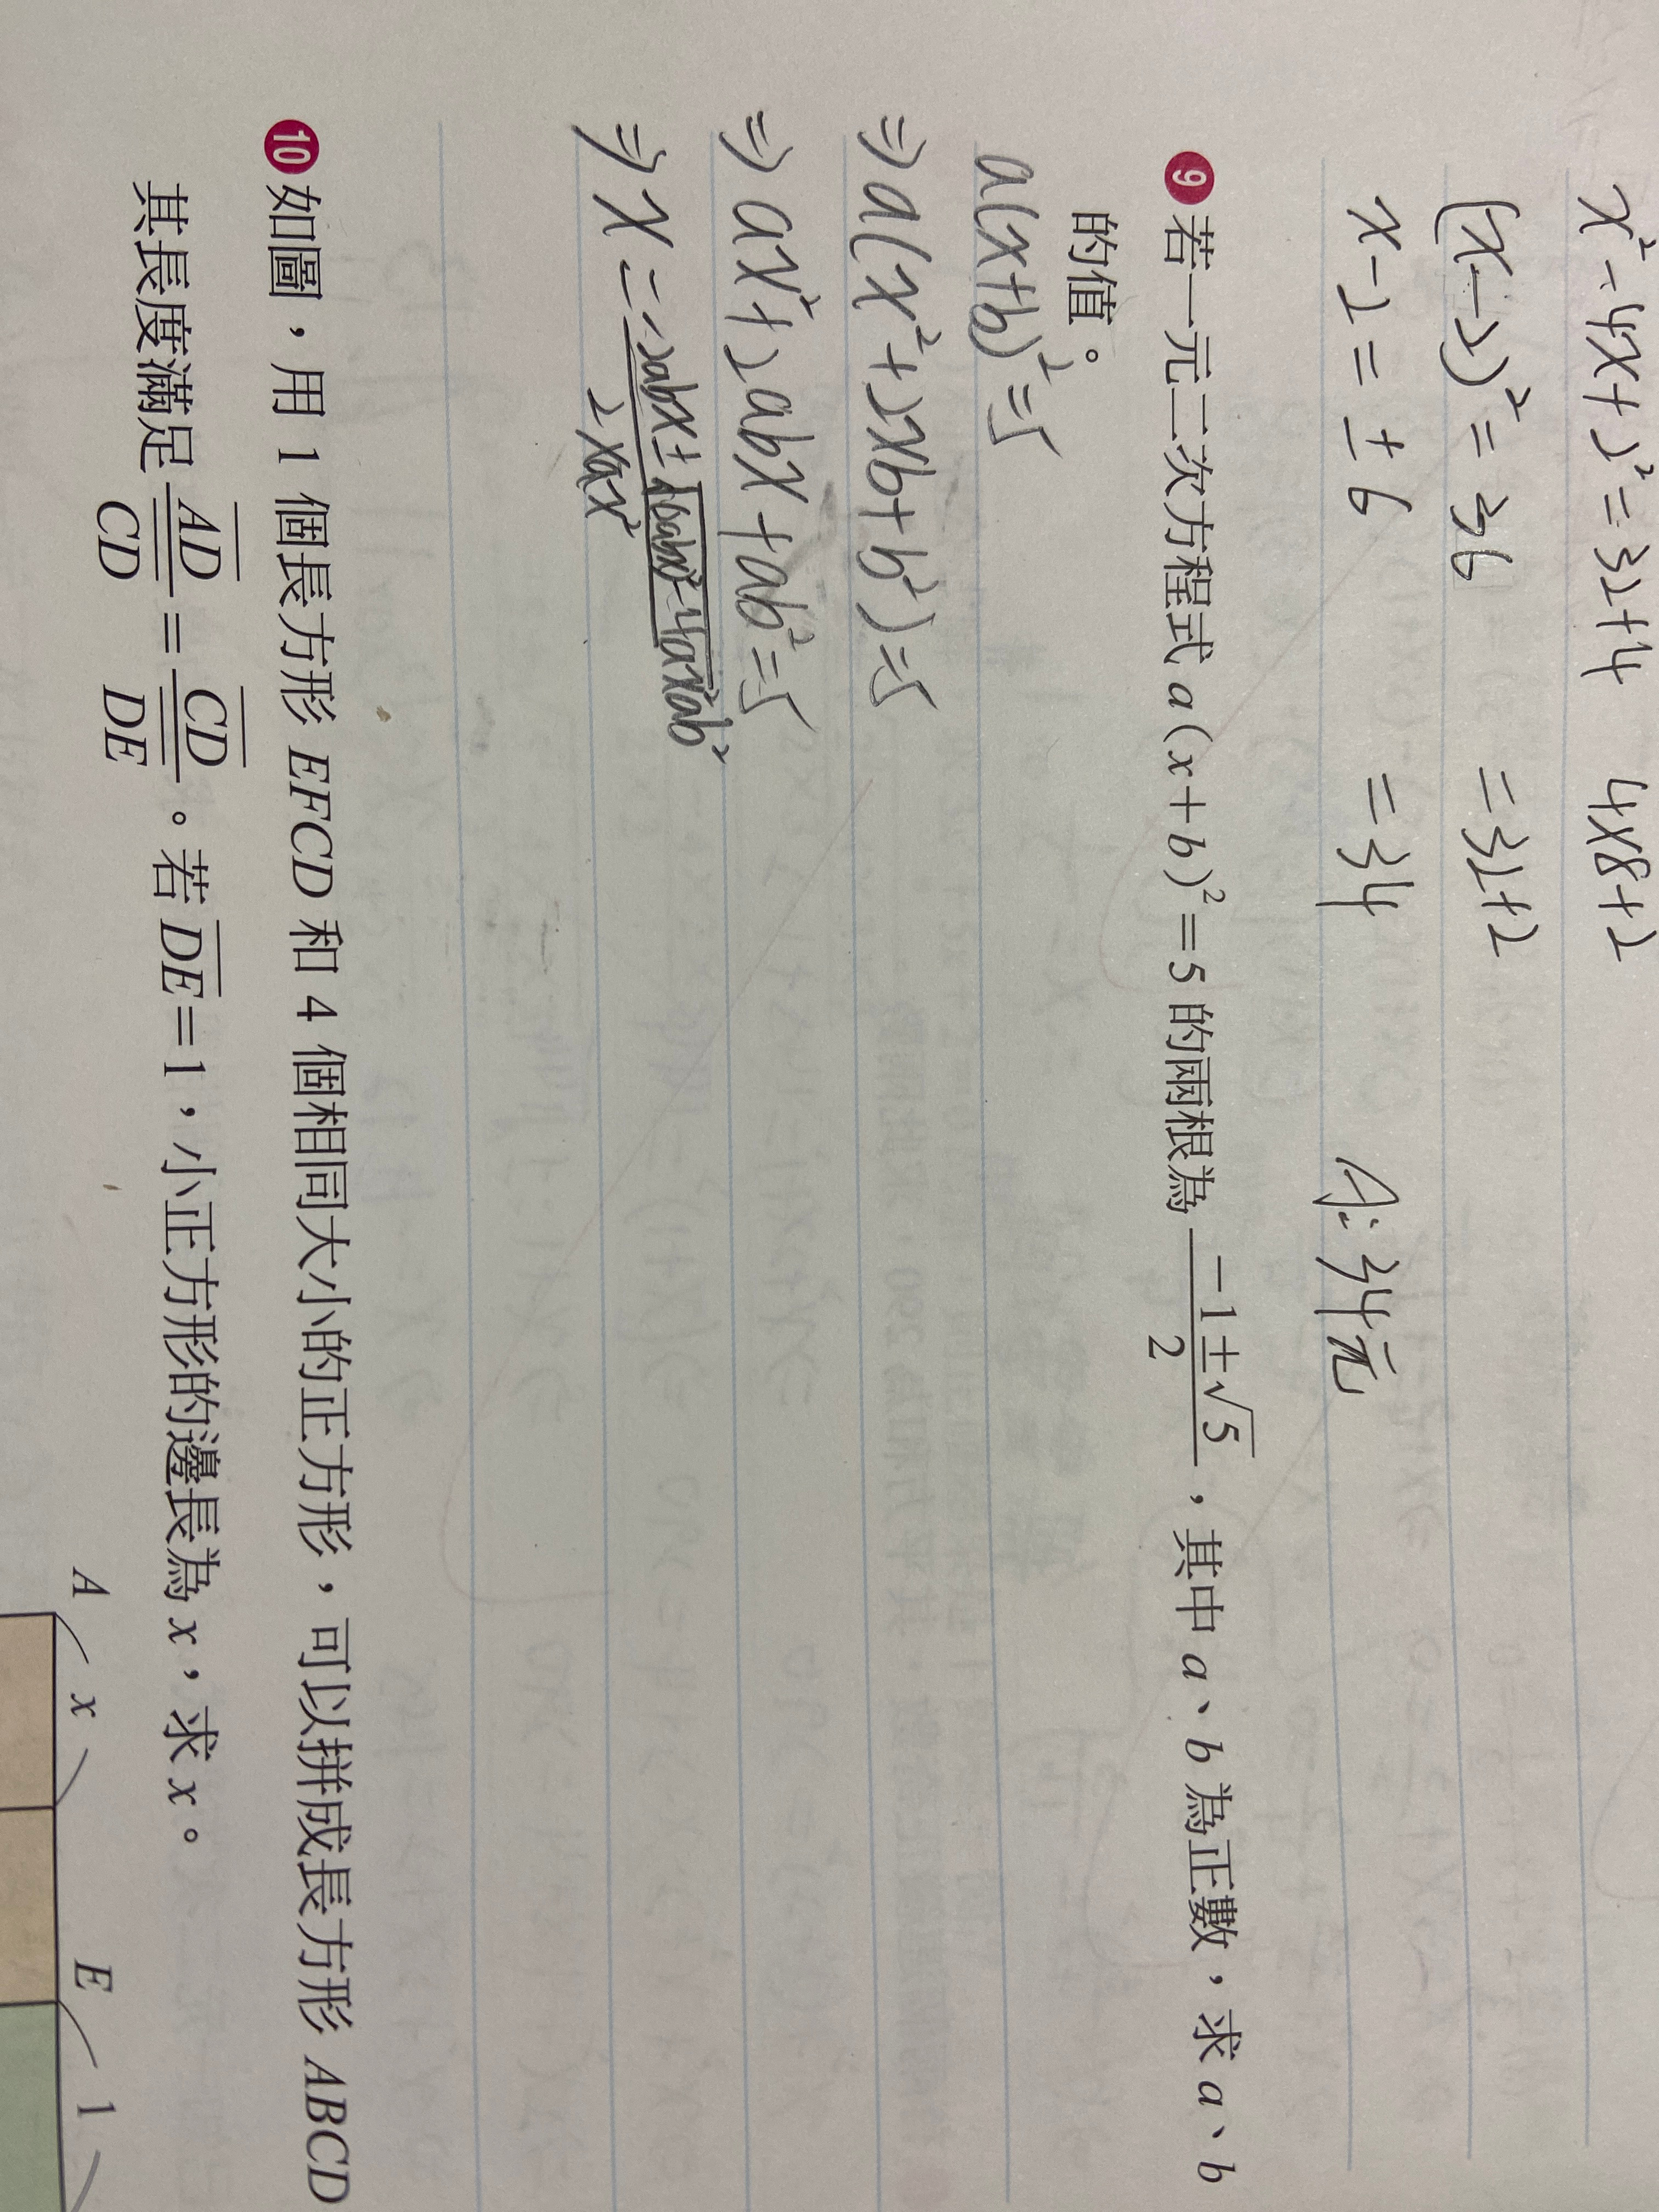 x²-4x+2²=32+4 4×8+2
(x-2)²=36 =32+2
x-2=±6 =34 A:34元
9 若一元二次方程式 a(x+b)²=5 的兩根為 (-1±√5)/2，其中 a、b 為正數，求 a、b
的值。
a(x+b)²=5
⇒a(x²+2xb+b²)=5
⇒ax²+2abx+ab²=5
⇒x=
10 如圖，用 1 個長方形 EFCD 和 4 個相同大小的正方形，可以拼成長方形 ABCD
其長度滿足 AD/CD = CD/DE。若 DE=1，小正方形的邊長為 x，求 x。
A x E 1